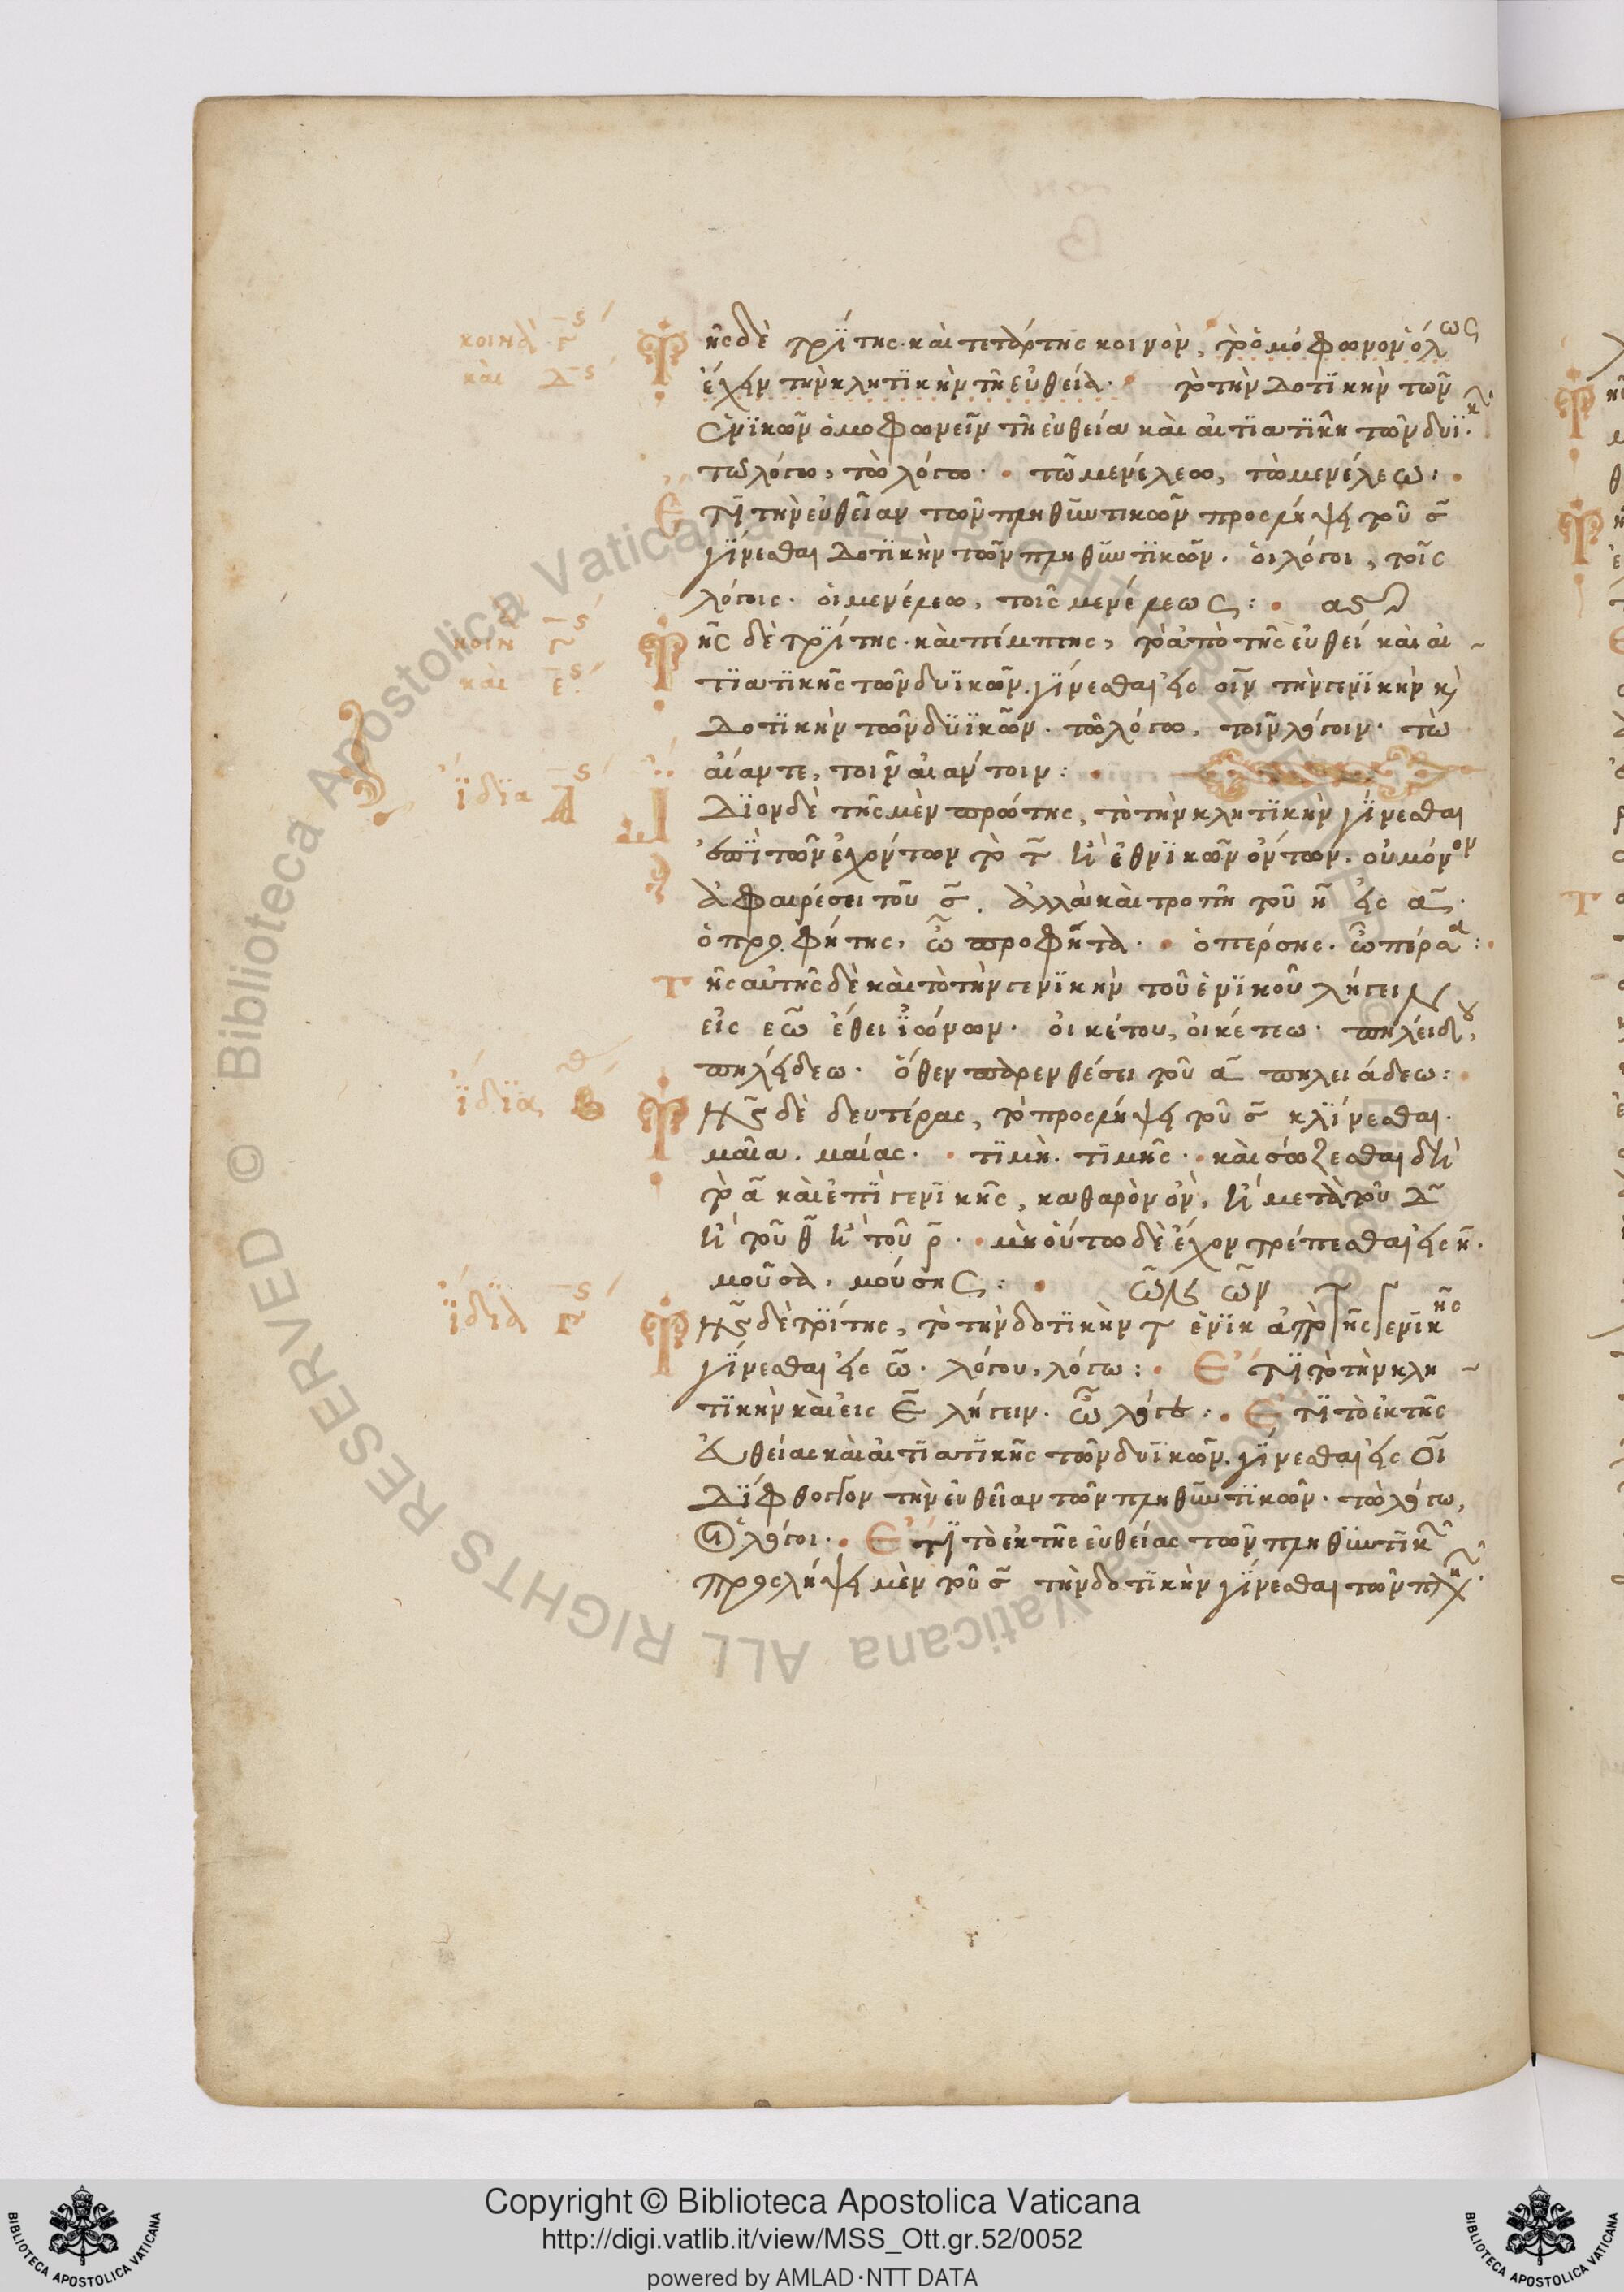 κοινὰ Γης
καὶ Δης
Τῆς δὲ τρίτης καὶ τετάρτης κοινὸν, τὸ ὁμόφωνον ὅλως
ἔχειν τὴν κλητικὴν τῆ εὐθεία. τὸ τὴν δοτικὴν τῶν
ἑνικῶν ὁμοφωνεῖν τῆ εὐθεία καὶ αἰτιατικῆ τῶν δυϊκ.
τῶ λόγω, τὼ λόγω. τῶ μενέλεω, τὼ μενέλεω:
Ἔτι τὴν εὐθεῖαν τῶν πληθυντικῶν προσλήψει τοῦ σ
γίνεσθαι δοτικὴν τῶν πληθυντικῶν. οἱ λόγοι, τοῖς
λόγοις. οἱ μενέλεω, τοῖς μενέλεως:
κοιν Γης
καὶ Ε.ς
Τῆς δὲ τρίτης καὶ πέμπτης, τὸ ἀπὸ τῆς εὐθεί καὶ αἰ
τιατικῆς τῶν δυϊκῶν γίνεσθαι εἰς οιν τὴν γενικὴν κὶ
δοτικὴν τῶν δυϊκῶν. τὼ λόγω, τοῖν λόγοιν. τὼ
αἴαντε, τοῖν αἰάντοιν:
ἴδια Αης
Ἴδιον δὲ τῆς μὲν πρώτης, τὸ τὴν κλητικὴν γίνεσθαι
ἐπὶ τῶν ἐχόντων τὸ τ ἢ ἐθνικῶν ὄντων. οὐ μόνον
ἀφαιρέσει τοῦ σ. ἀλλὰ καὶ τροπῆ τοῦ η εἰς α.
ὁ προφήτης, ὦ προφῆτα. ὁ πέρσης. ὦ πέρσα:
Τῆς αὐτῆς δὲ καὶ τὸ τὴν γενικὴν τοῦ ἑνικοῦ λήγειν
εἰς εω ἔθει ἰώνων. οἰκέτου, οἰκέτεω. πηλείδου,
πηλείδεω. ὅθεν παρενθέσει τοῦ α πηλειάδεω:
ἴδια Β
Τῆς δὲ δευτέρας, τὸ προσλήψει τοῦ σ κλίνεσθαι.
μαῖα. μαίας. τιμὴ. τιμῆς. καὶ σώζεσθαι δὴ
τὸ α καὶ ἐπὶ γενικῆς, καθαρὸν ὂν, ἢ μετὰ τοῦ δ
ἢ τοῦ θ ἢ τοῦ ρ. μὴ οὕτω δὲ ἔχον τρέπεσθαι εἰς η.
μοῦσα, μούσης:
ἴδια Γης
Τῆς δὲ τρίτης, τὸ τὴν δοτικὴν τ ἑνικ ἀπὸ τῆς γενικῆς
γίνεσθαι εἰς ω. λόγου, λόγω: Ἔτι τὸ τὴν κλη
τικὴν καὶ εἰς Ε λήγειν. ὦ λόγε: Ἔτι τὸ ἐκ τῆς
εὐθείας καὶ αἰτιατικῆς τῶν δυϊκῶν γίνεσθαι εἰς Οι
δίφθογγον τὴν εὐθεῖαν τῶν πληθυντικῶν. τὼ λόγω,
οἱ λόγοι. Ἔτι τὸ ἐκ τῆς εὐθείας τῶν πληθυντικῶν
προσλήψει μὲν τοῦ σ τὴν δοτικὴν γίνεσθαι τῶν πλη
Copyright © Biblioteca Apostolica Vaticana
http://digi.vatlib.it/view/MSS_Ott.gr.52/0052
powered by AMLAD·NTT DATA
BIBLIOTECA APOSTOLICA VATICANA
BIBLIOTECA APOSTOLICA VATICANA
© Biblioteca Apostolica Vaticana ALL RIGHTS RESERVED